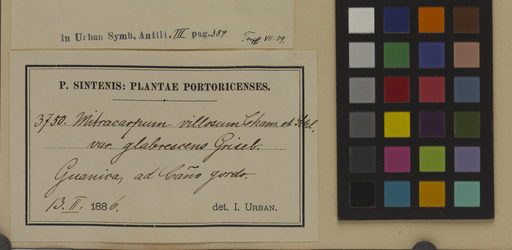 in Urban Symb. Antill. III pag. 389
P. SINTENIS: PLANTAE PORTORICENSES.
3750. Mitracarpum villosum Cham. et Schl,
var. glabrescens Griseb.
Guanica, ad Caño gordo.
13. II. 1886. det. I. URBAN.